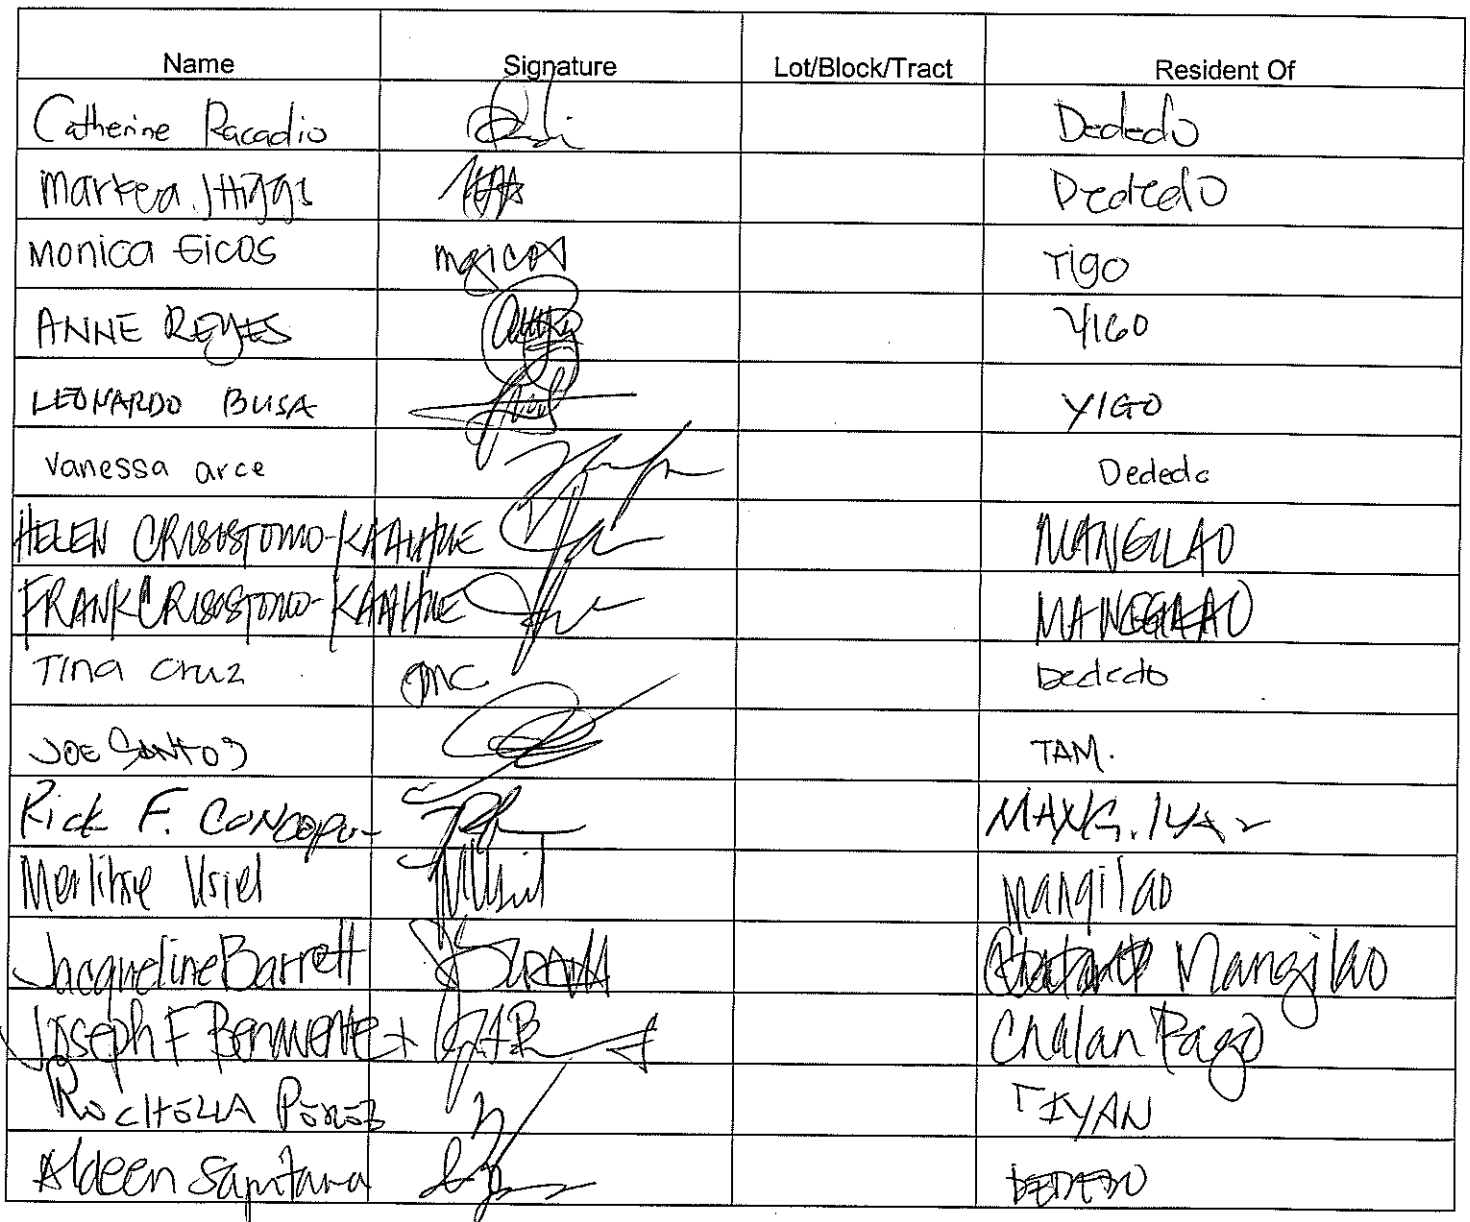 Name Signature Lot/Block/Tract Resident Of
Catherine Racadio Dededo
Dededo
Monica Gicos mgicos Yigo
ANNE REYES YIGO
LEONARDO BUSA YIGO
Vanessa arce Dededo
HELEN CRISOSTOMO-KAAIHUE MANGILAO
FRANK CRISOSTOMO-KAAIHUE MANGILAO
Tina Cruz mc Dededo
JOE SANTOS TAM.
Rick F.
Usiel Mangilao
Jacqueline Barrett Mangilao
Joseph F Benavente Chalan Pago
PEREZ TIYAN
Aldeen Santana DEDEDO